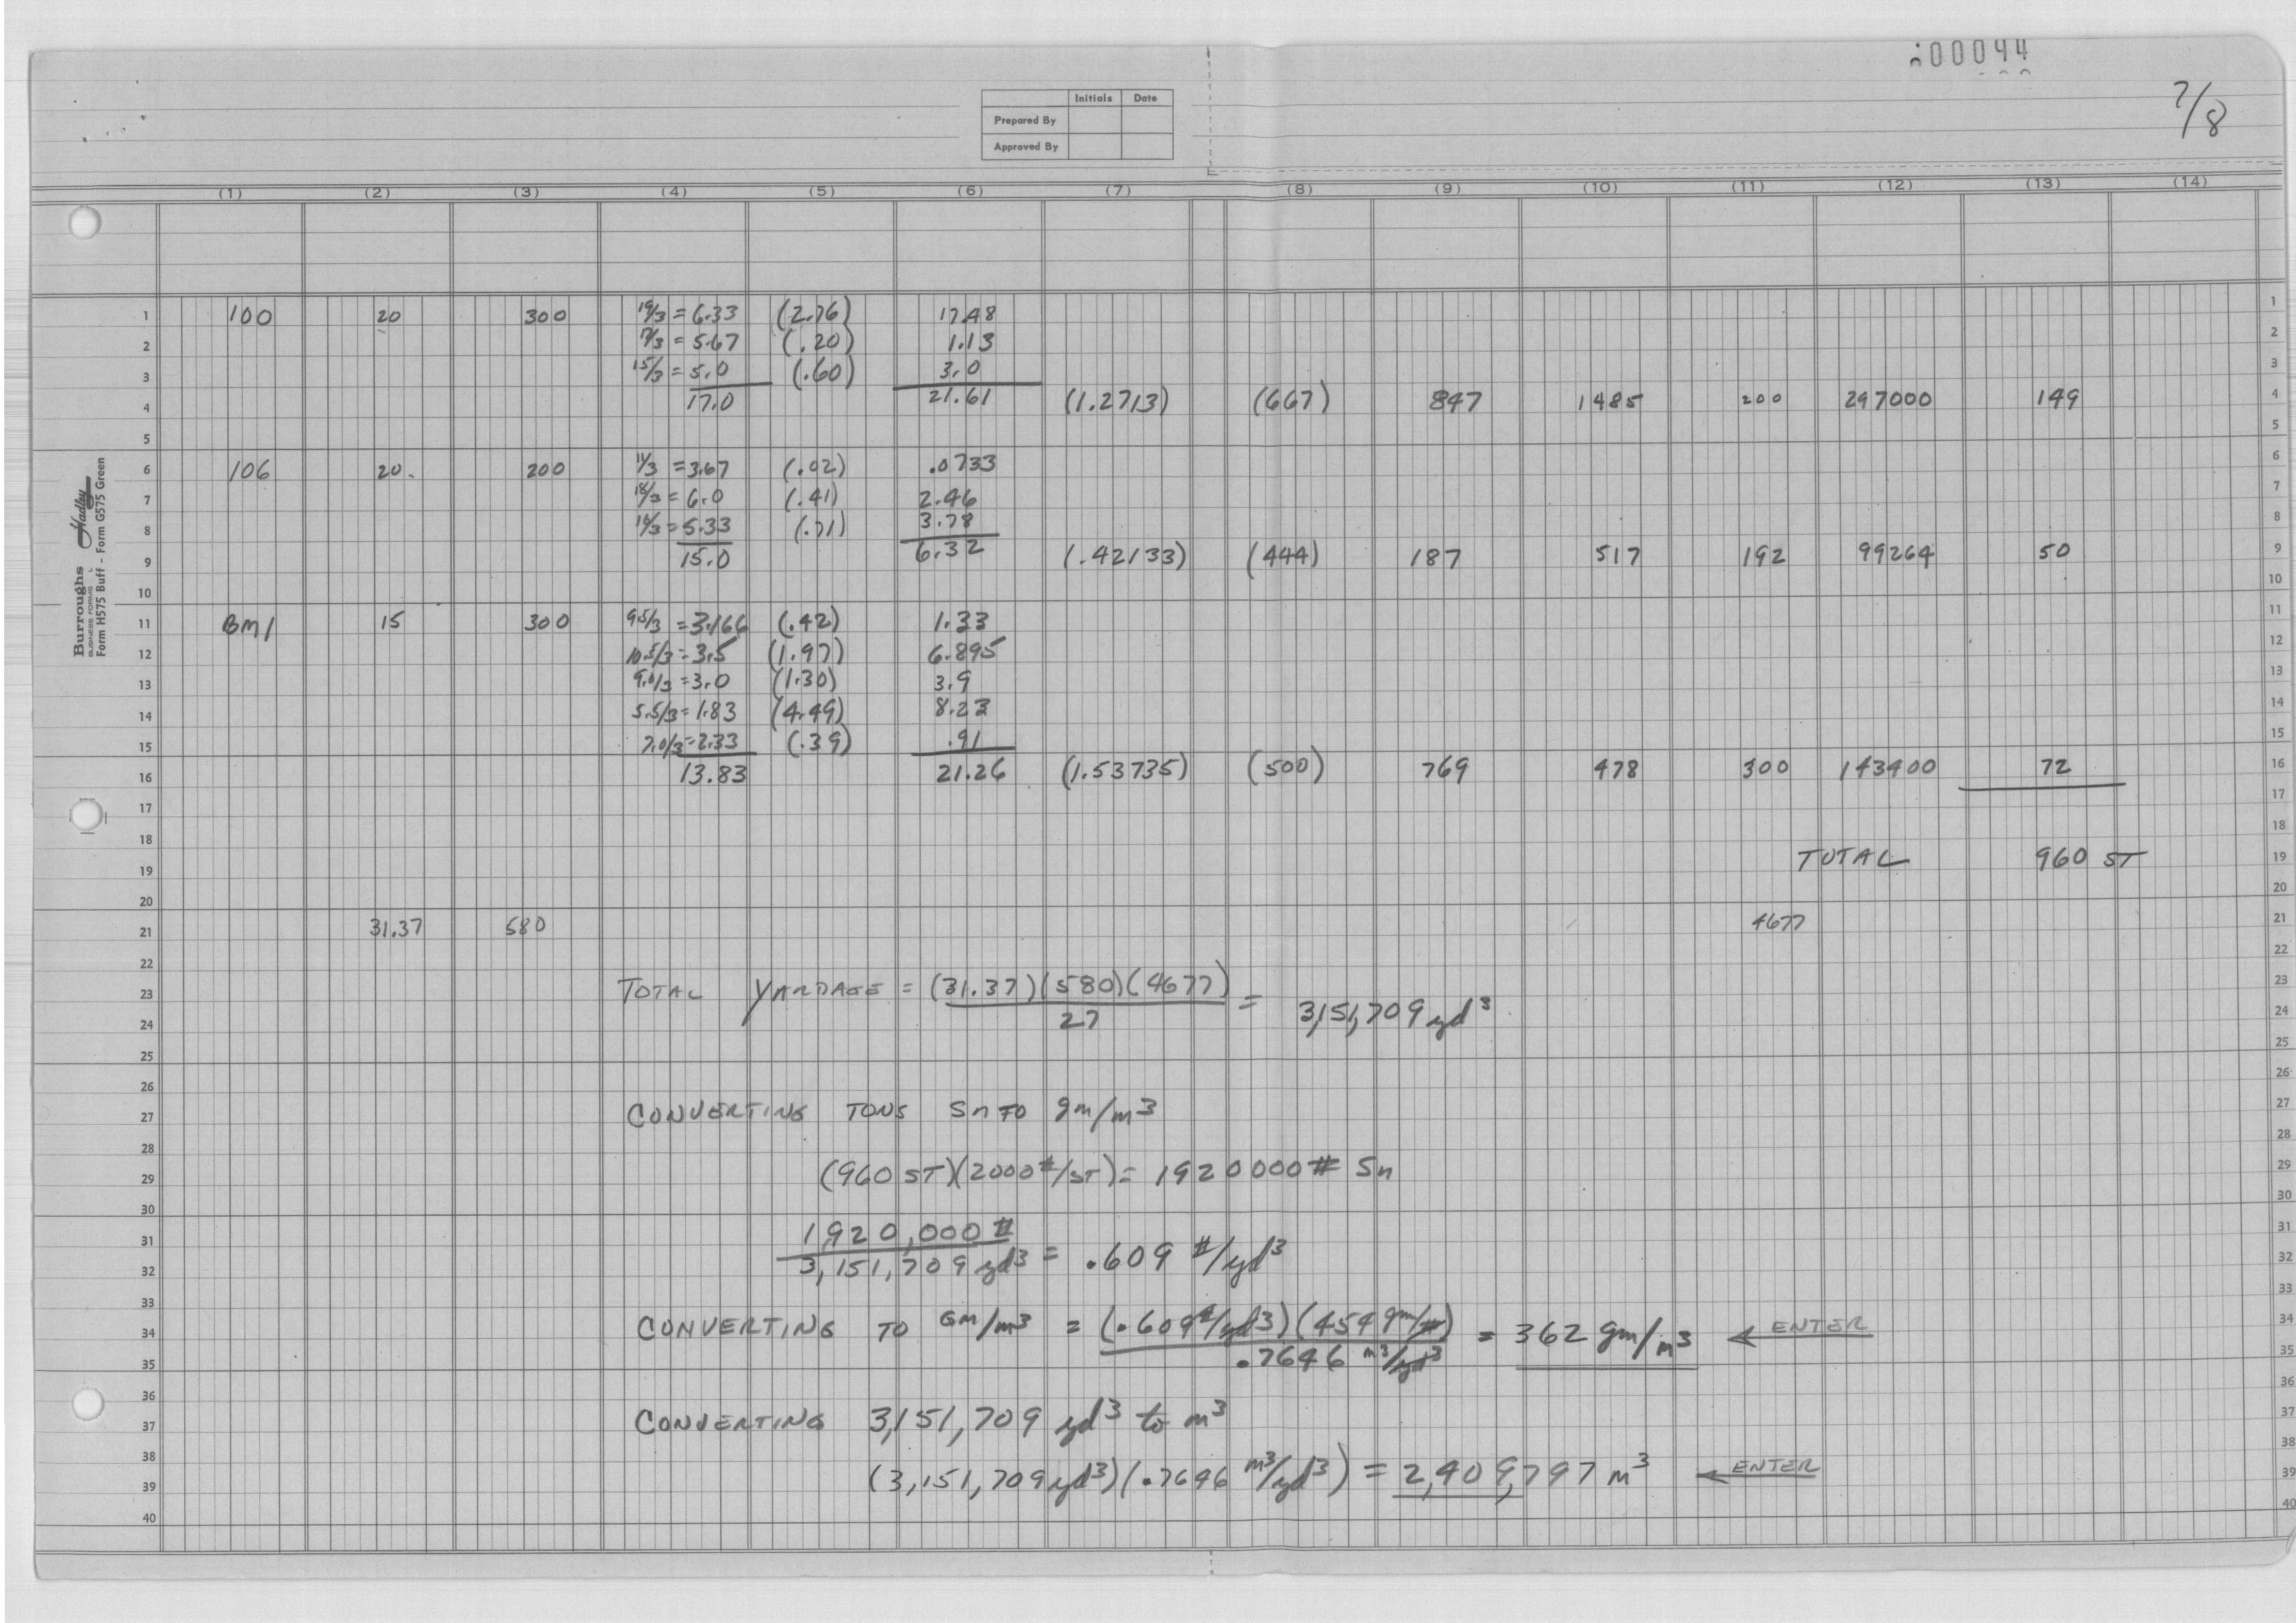 :00044
7/8
Initials Date
Prepared By
Approved By
(1) (2) (3) (4) (5) (6) (7) (8) (9) (10) (11) (12) (13) (14)
1 100 20 300 19/3 = 6.33 (2.76) 17.48 1
2 17/3 = 5.67 (.20) 1.13 2
3 15/3 = 5.0 (.60) 3.0 3
4 17.0 21.61 (1.2713) (667) 847 1485 200 297000 149 4
5 5
6 106 20 200 11/3 = 3.67 (.02) .0733 6
7 18/3 = 6.0 (.41) 2.46 7
8 16/3 = 5.33 (.71) 3.78 8
9 15.0 6.32 (.42133) (444) 187 517 192 99264 50 9
10 10
11 BM1 15 300 9.5/3 = 3.166 (.42) 1.33 11
12 10.5/3 = 3.5 (1.97) 6.895 12
13 9.0/3 = 3.0 (1.30) 3.9 13
14 5.5/3 = 1.83 (4.49) 8.23 14
15 7.0/3 = 2.33 (.39) .91 15
16 13.83 21.26 (1.53735) (500) 769 478 300 143400 72 16
17 17
18 18
19 TOTAL 960 ST 19
20 20
21 31.37 580 4677 21
22 22
23 TOTAL YARDAGE = (31.37)(580)(4677) = 23
24 27 3,151,709 yd3 24
25 25
26 26
27 CONVERTING TONS Sn TO gm/m3 27
28 28
29 (960 ST)(2000#/ST) = 1920000# Sn 29
30 30
31 1,920,000 # 31
32 3,151,709 yd3 = .609 #/yd3 32
33 33
34 CONVERTING TO GM/m3 = (.609#/yd3)(454 gm/#) = 362 gm/m3 ← ENTER 34
35 .7646 m3/yd3 35
36 36
37 CONVERTING 3,151,709 yd3 to m3 37
38 38
39 (3,151,709 yd3)(.7646 m3/yd3) = 2,409,797 m3 ← ENTER 39
40 40
Burroughs Hadley
BUSINESS FORMS
Form H575 Buff - Form G575 Green